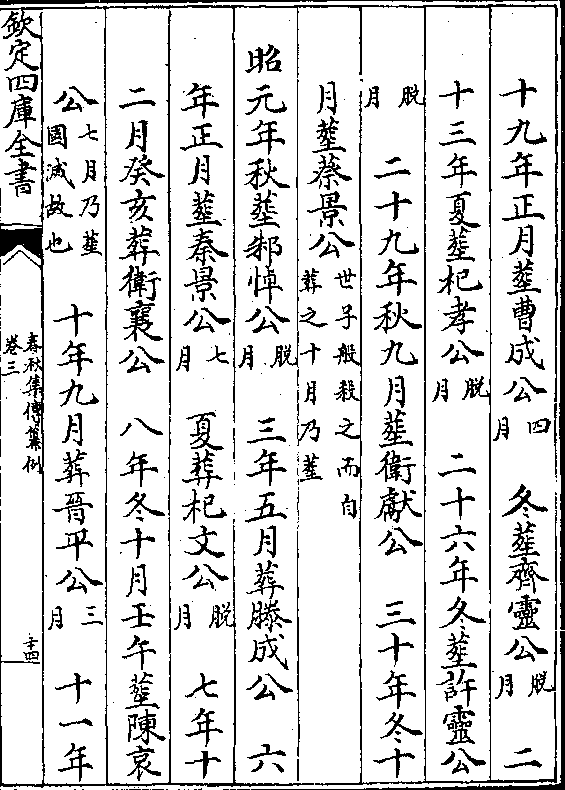 十九年正月葬曹成公四月　冬葬齊靈公脫月　二
十三年夏葬杞孝公脫月　二十六年冬葬許靈公
脫月　二十九年秋九月葬衛獻公　三十年冬十
月葬蔡景公世子般殺之而自葬之十月乃葬
昭元年秋葬邾悼公脫月　三年五月葬滕成公　六
年正月葬秦景公七月　夏葬杞文公脫月　七年十
二月癸亥葬衛襄公　八年冬十月壬午葬陳哀
公七月乃葬國滅故也　十年九月葬晉平公三月　十一年
欽定四庫全書
春秋集傳纂例
卷三
十四